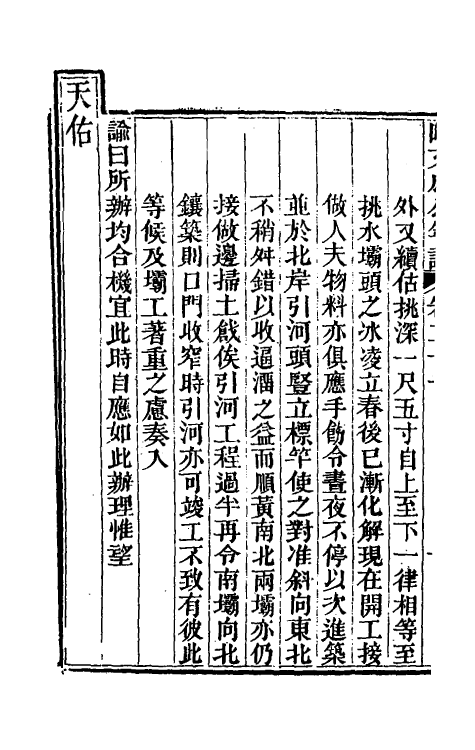 外又續估挑深一尺五寸自上至下一律相等至
挑水壩頭之冰凌立春後已漸化解現在開工接
做人夫物料亦俱應手飭令晝夜不停以次進築
並於北岸引河頭豎立標竿使之對准斜向東北
不稍舛錯以收逼溜之益而順黃南北兩壩亦仍
接做邊掃土戧俟引河工程過半再令南壩向北
鑲築則口門收窄時引河亦可竣工不致有彼此
等候及壩工著重之慮奏入
諭曰所辦均合機宜此時自應如此辦理惟望
天佑